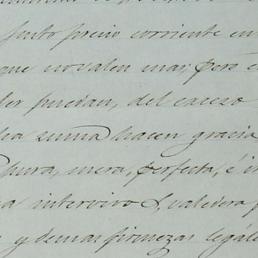 justo precio corriente en
que no valen mas, pero e
ler puedan, del exceso
ha suma hacen gracia
pura, mera, perfecta, é i
a intervivos, valedera
y demas firmezas legale